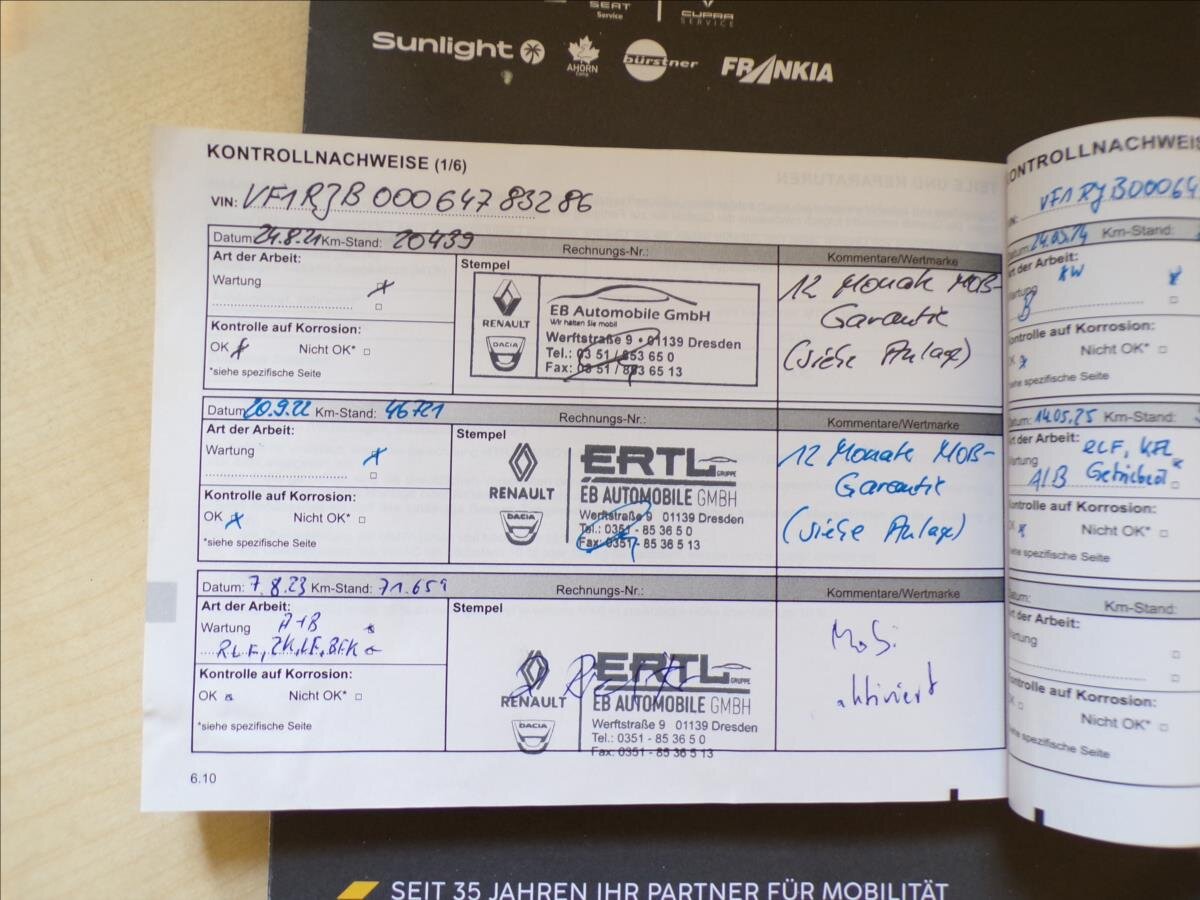 SEAT
Service
CUPRA
SERVICE
Sunlight
AHORN
Camp
bürstner
FRANKIA
KONTROLLNACHWEISE (1/6)
VIN: VF1RJB00064783286
Datum: 24.8.21 Km-Stand: 20439 Rechnungs-Nr.: Kommentare/Wertmarke
Art der Arbeit:
Wartung
Kontrolle auf Korrosion:
OK Nicht OK*
*siehe spezifische Seite
Stempel
RENAULT
DACIA
EB Automobile GmbH
Wir halten Sie mobil
Werftstraße 9 • 01139 Dresden
Tel.: 03 51 / 853 65 0
Fax: 03 51 / 853 65 13
12 Monate MOB-
Garantie
(siehe Anlage)
Datum: 20.9.22 Km-Stand: 46721 Rechnungs-Nr.: Kommentare/Wertmarke
Art der Arbeit:
Wartung
Kontrolle auf Korrosion:
OK Nicht OK*
*siehe spezifische Seite
Stempel
RENAULT
DACIA
ERTL
GRUPPE
EB AUTOMOBILE GMBH
Werftstraße 9 01139 Dresden
Tel.: 0351 - 85 36 5 0
Fax: 0351 - 85 36 5 13
12 Monate MOB-
Garantie
(siehe Anlage)
Datum: 7.8.23 Km-Stand: 71.659 Rechnungs-Nr.: Kommentare/Wertmarke
Art der Arbeit:
Wartung A+B
Kontrolle auf Korrosion:
OK Nicht OK*
*siehe spezifische Seite
Stempel
RENAULT
DACIA
ERTL
GRUPPE
EB AUTOMOBILE GMBH
Werftstraße 9 01139 Dresden
Tel.: 0351 - 85 36 5 0
Fax: 0351 - 85 36 5 13
Mobi
aktiviert
6.10
ONTROLLNACHWEIS
VF1RJB00064
Datum: 24.05.24 Km-Stand:
Art der Arbeit:
Kontrolle auf Korrosion:
Nicht OK*
siehe spezifische Seite
14.05.25 Km-Stand:
Art der Arbeit:
Kontrolle auf Korrosion:
Nicht OK*
siehe spezifische Seite
Datum: Km-Stand:
Art der Arbeit:
Wartung
Kontrolle auf Korrosion:
OK Nicht OK*
siehe spezifische Seite
SEIT 35 JAHREN IHR PARTNER FÜR MOBILITÄT